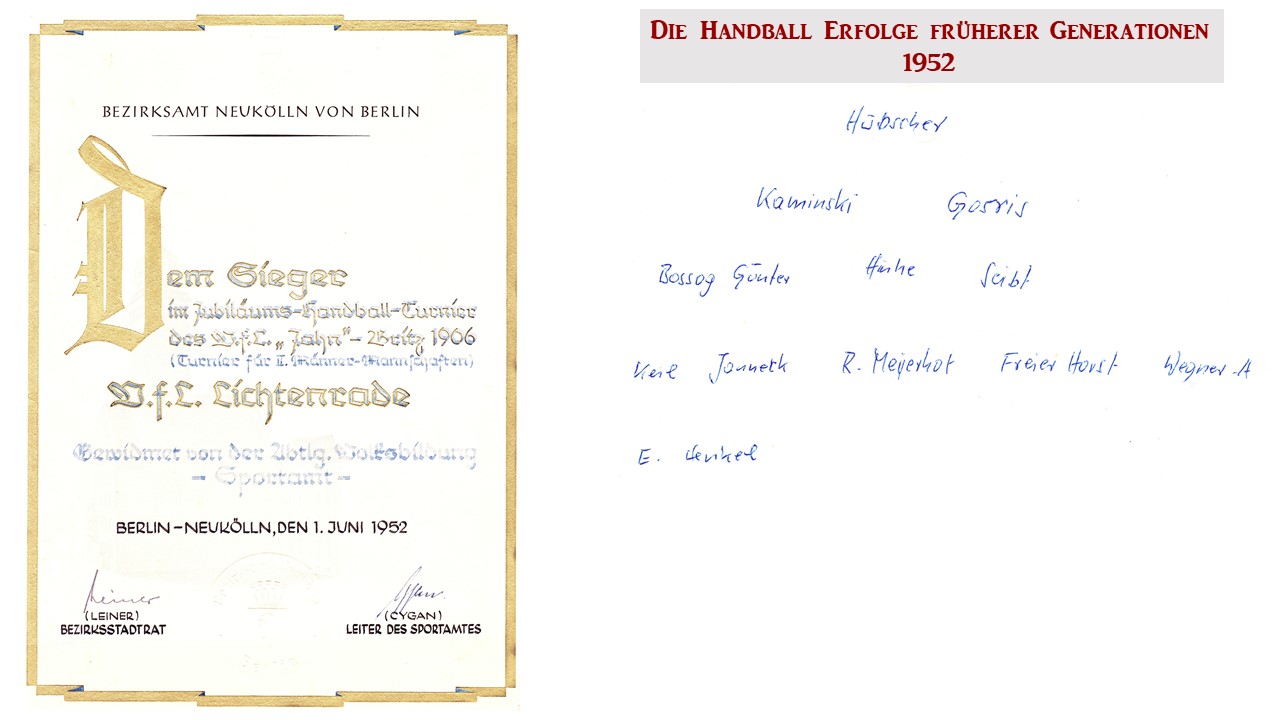 BEZIRKSAMT NEUKÖLLN VON BERLIN
Dem Sieger
im Jubiläums-Handball-Turnier
des V.f.L. „Jahn“ - Britz 1906
(Turnier für II. Männer-Mannschaften)
V.f.L. Lichtenrade
Gewidmet von der Abtlg. Volksbildung
- Sportamt -
BERLIN-NEUKÖLLN, DEN 1. JUNI 1952
Leiner
(LEINER)
BEZIRKSSTADTRAT
Cygan
(CYGAN)
LEITER DES SPORTAMTES
DIE HANDBALL ERFOLGE FRÜHERER GENERATIONEN
1952
Hübscher
Kaminski Gosris
Bossog Günter Seibt
Janneck R. Meyerhof Freier Horst Wegner. A
E. Henkel